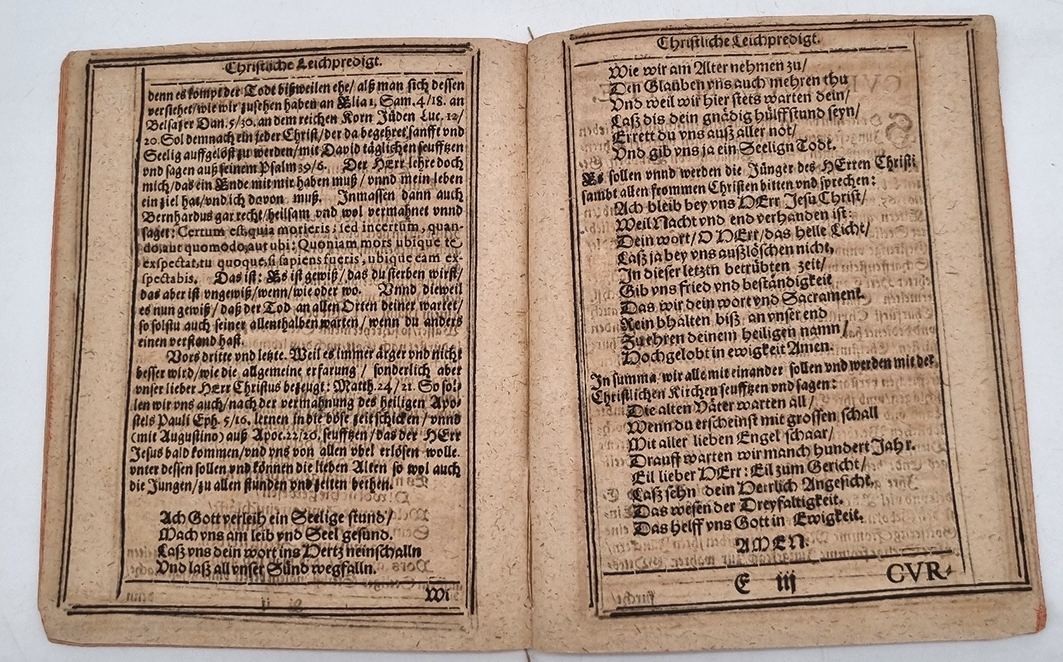 Christliche Leichpredigt.
denn es kompt der Todt bißweilen ehe/ alß man sich dessen
versiehet/ wie wir zusehen haben an Elia 1, Sam. 4/18. an
Belsazer Dan. 5/30. an dem reichen Korn Jüden Luc. 12/
20. Sol demnach ein jeder Christ/ der da begehret sanfft vnd
Seelig auffgelöst zu werden/ mit David täglichen seufftzen
vnd sagen auß seinem Psalm 39/6. Der HErr lehre doch
mich/ das ein Ende mit mir haben muß/ vnnd mein leben
ein ziel hat/ vnd ich davon muß. Inmassen dann auch
Bernhardus gar recht/ heilsam vnd wol vermahnet vnnd
saget: Certum est, quia morieris; sed incertum, quan-
do, aut quomodo, aut ubi: Quoniam mors ubique te
exspectat, tu quoque, si sapiens fueris, ubique eam ex-
spectabis. Das ist: Es ist gewiß/ das du sterben wirst/
das aber ist vngewiß/ wenn/ wie oder wo. Vnnd dieweil
es nun gewiß/ daß der Tod an allen Orten deiner wartet/
so solstu auch seiner allenthalben warten/ wenn du anders
einen verstand hast.
Vors dritte vnd letzte. Weil es immer ärger vnd nicht
besser wird/ wie die allgemeine erfarung/ sonderlich aber
vnser lieber HErr Christus bezeugt: Matth. 24/21. So sol-
len wir vns auch/ nach der vermahnung des heiligen Apo-
stels Pauli Eph. 5/16. lernen in die böse zeit schicken/ vnnd
(mit Augustino) auß Apoc. 22/20. seufftzen/ das der HErr
Jesus bald kommen/ vnd vns von allen vbel erlösen wolle.
vnter dessen sollen vnd können die lieben Alten so wol auch
die Jungen/ zu allen stunden vnd zeiten bethen.
Ach Gott verleih ein Seelige stund/
Mach vns am leib vnd Seel gesund.
Laß vns dein wort ins Hertz neinschalln
Vnd laß all vnser Sünd wegfalln.
Wi
Christliche Leichpredigt.
Wie wir am Alter nehmen zu/
Den Glauben vns auch mehren thu
Vnd weil wir hier stets warten dein/
Laß dis dein gnädig hülffstund seyn/
Errett du vns auß aller not/
Vnd gib vns ja ein Seelign Todt.
Es sollen vnnd werden die Jünger des HErren Christi
sambt allen frommen Christen bitten vnd sprechen:
Ach bleib bey vns HErr Jesu Christ/
Weil Nacht vnd end verhanden ist:
Dein wort/ O HErr/ das helle Licht/
Laß ja bey vns außlöschen nicht,
In dieser letztn betrübten zeit/
Gib vns fried vnd beständigkeit
Das wir dein wort vnd Sacrament.
Rein bhalten biß an vnser end
Zu ehren deinem heiligen namn/
Hochgelobt in ewigkeit Amen.
In summa wir alle mit einander sollen vnd werden mit der
Christlichen Kirchen seufftzen vnd sagen:
Die alten Väter warten all/
Wenn du erscheinst mit grossen schall
Mit aller lieben Engel schaar/
Drauff warten wir manch hundert Jahr.
Eil lieber HErr: Eil zum Gericht/
Laß sehn dein Herrlich Angesicht,
Das wesen der Dreyfaltigkeit.
Das helff vns Gott in Ewigkeit.
AMEN.
E iij
CVR-